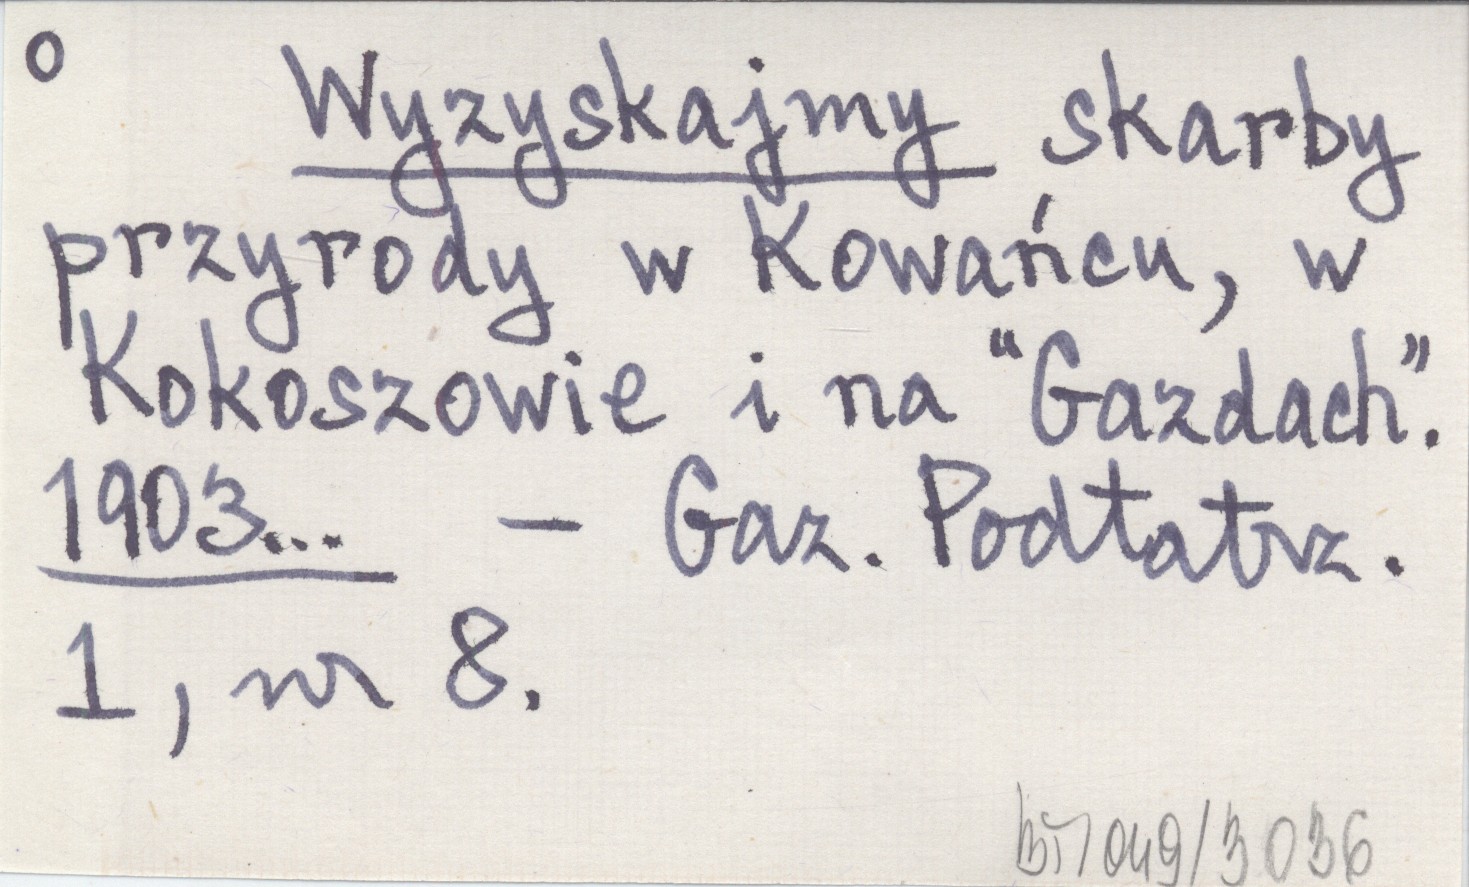 o Wyzyskajmy skarby
przyrody w Kowańcu, w
Kokoszowie i na "Gazdach".
1903... - Gaz. Podtatrz.
1, nr 8.
049/3036